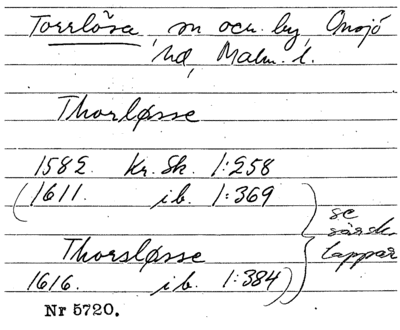 Torrlösa, sn och by, Onsjö
hd, Malm. l.
Thorløsse
1582. Kr. Sk. 1:258
(1611. ib. 1:369
Thorsløsse
1616. ib. 1:384)
se
särsk.
lappar
Nr 5720.